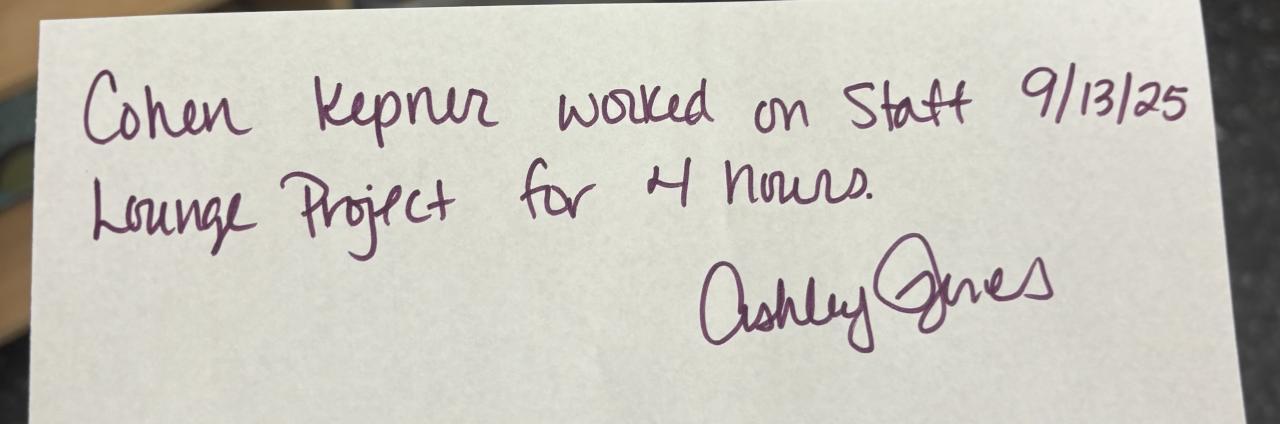 Cohen Kepner worked on Staff 9/13/25
Lounge Project for 4 hours.
Ashley Jones